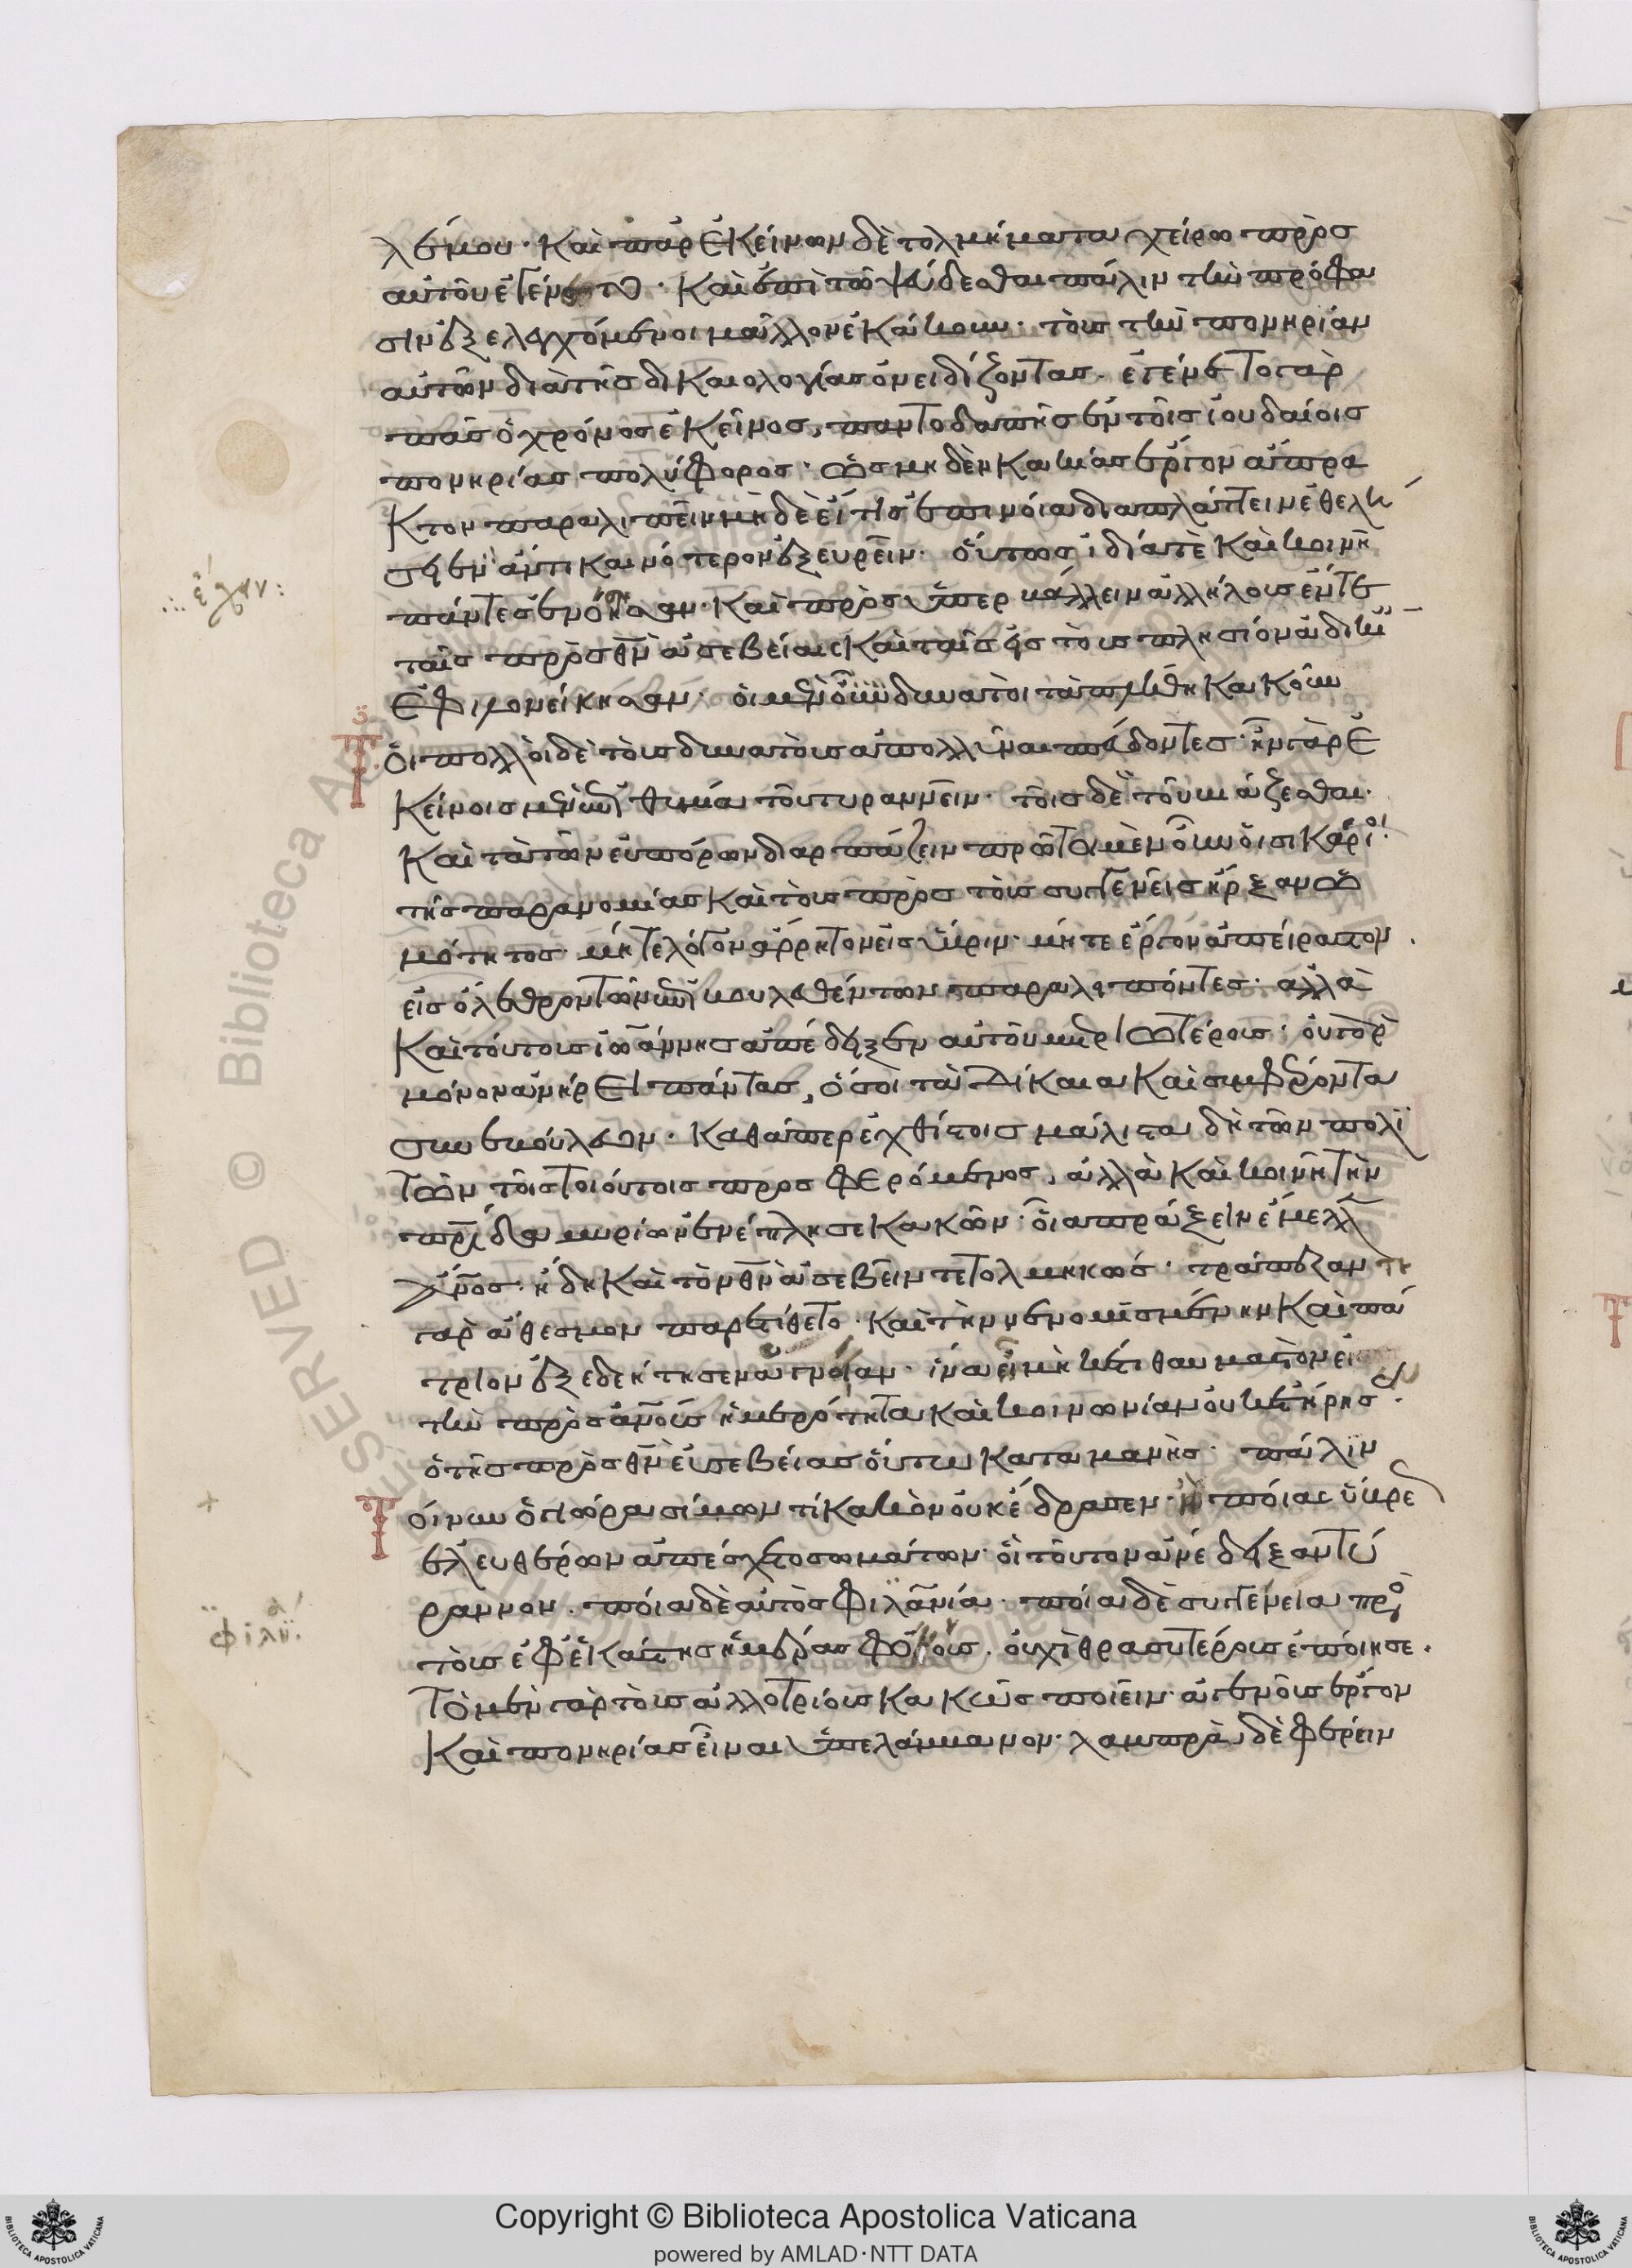 λέμου· καὶ παρ' ἐκείνων δὲ τολμήματα χείρω πρὸς
αὐτοὺς ἐγένετο· καὶ ἐπὶ τῷ ψεύδεσθαι πάλιν τὴν πρόφα
σιν ἐξελεγχόμενοι μᾶλλον ἐκάκουν· τοὺς τὴν πονηρίαν
αὐτῶν διὰ τῆς δικαιολογίας ὀνειδίζοντας. ἐγένετο γάρ
πως ὁ χρόνος ἐκεῖνος, παντοδαπῆς ἐν τοῖς ἰουδαίοις
πονηρίας πολύφορος· ὡς μηδὲν κακίας ἔργον ἄπρα
κτον παραλιπεῖν· μηδὲ εἴ τις ἐπινοία διαπλάττειν ἐθελή
σειεν ἄν τι καινότερον ἐξευρεῖν· οὕτως ἰδία τὲ καὶ κοινῆ
πάντες ἐνόσησαν· καὶ πρὸς ὑπερβάλλειν ἀλλήλους ἔν τε
ταῖς πρὸς θν ἀσεβείαις καὶ ταῖς εἰς τοὺς πλησίον ἀδικί
ἐφιλονείκησαν· οἱ μὲν οὖν δυνατοὶ τὰ πλήθη κακοῦν
οἱ πολλοὶ δὲ τοὺς δυνατοὺς ἀπολλύναι σπεύδοντες· ἦν γὰρ ἐ
κείνοις μὲν ἐπιθυμία τοῦ τυραννεῖν· τοῖς δὲ τοῦ βιάζεσθαι·
καὶ τὰ τῶν εὐπόρων διαρπάζειν πρῶτοι μὲν οὖν οἱ σικάριοι
τῆς παρανομίας καὶ τοὺς πρὸς τοὺς συγγενεῖς ἦρξαν ὠ
μότητος· μήτε λόγον ἄρρητον εἰς ὕβριν· μήτε ἔργον ἀπείρατον
εἰς ὄλεθρον τῶν ἐπιβουλευθέντων παραλειπόντες· ἀλλὰ
καὶ τούτους ἰωάννης ἀπέδειξεν αὐτοῦ μετριωτέρους· οὐ γὰρ
μόνον ἀνήρει πάντας, ὅσοι τὰ δίκαια καὶ συμφέροντα
συνεβούλευον· καθάπερ ἐχθίστοις μάλιστα δὴ τῶν πολι
τῶν τοῖς τοιούτοις προσφερόμενος, ἀλλὰ καὶ κοινῆ τὴν
πρίδα μυρίων ἐνέπλησε κακῶν· οἷα πράξειν ἔμελλ
ανος· ἤδη καὶ τὸν θν ἀσεβεῖν τετολμηκώς· τράπεζάν τε
γὰρ ἄθεσμον παρετίθετο· καὶ τὴν νενομισμένην καὶ πά
τριον ἐξεδιήτησεν ἁγνείαν· ἵν' εἰ μὴκέτι θαυμαστὸν εἰ
τὴν πρὸς ανους ἡμερότητα καὶ κοινωνίαν οὐκ ἐτήρησεν·
ὁ τῆς πρὸς θν εὐσεβείας οὕτω καταμανεὶς· πάλιν
τοίνυν ὁ γιώρα σίμων τί κακὸν οὐκ ἔδρασεν· ἢ ποίας ὕβρε
ἐλευθέρων ἀπέσχετο σωμάτων· οἳ τοῦτον ἀνέδειξαν τύ
ραννον· ποία δὲ αὐτὸς φιλανία· ποία δὲ συγγένεια πρὸς
τοὺς ἐφ' ἑκάστης ἡμέρας φόνους· οὐχὶ θρασυτέρους ἐποίησε·
τὸ μὲν γὰρ τοὺς ἀλλοτρίους κακῶς ποιεῖν· ἀγεννοῦς ἔργον
καὶ πονηρίας εἶναι ὑπελάμβανον· λαμπρὰν δὲ φέρειν